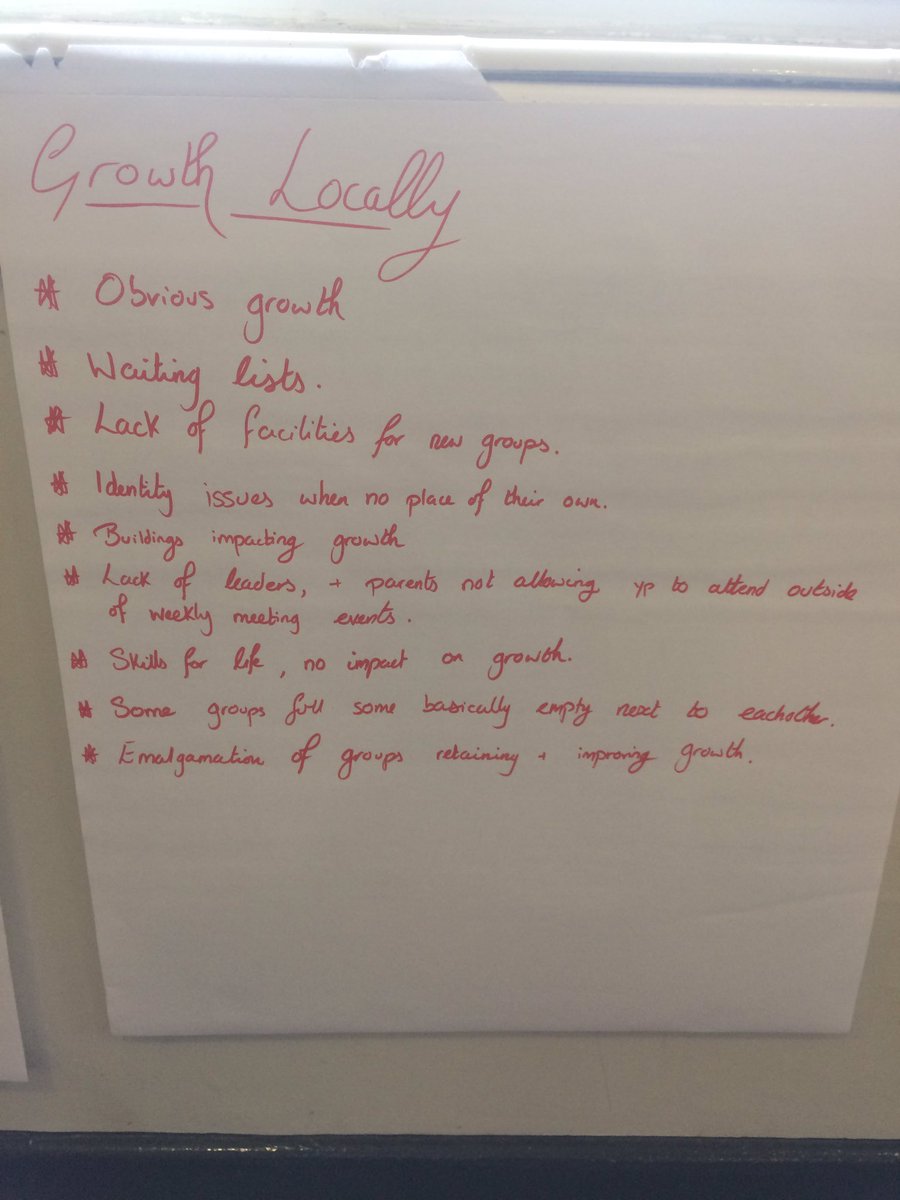 Growth Locally
* Obvious growth
* Waiting lists.
* Lack of facilities for new groups.
* Identity issues when no place of their own.
* Buildings impacting growth
* Lack of leaders, + parents not allowing YP to attend outside
of weekly meeting events.
* Skills for life, no impact on growth.
* Some groups full some basically empty next to eachother.
* Emalgamation of groups retaining + improving growth.